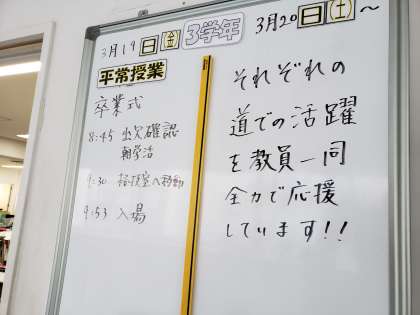 3月19日(金)
3学年
3月20日(土)～
平常授業
卒業式
8:45 出欠確認
朝学活
9:30 格技室へ移動
9:53 入場
それぞれの
道での活躍
を教員一同
全力で応援
しています!!